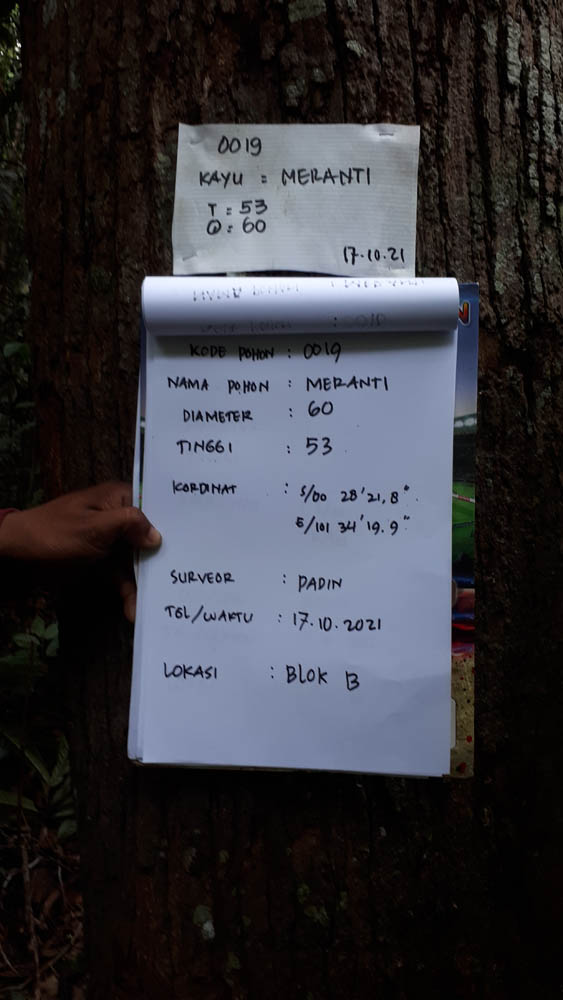 0019
KAYU = MERANTI
T = 53
Q = 60
17.10.21
KODE POHON : 0019
NAMA POHON : MERANTI
DIAMETER : 60
TINGGI : 53
KORDINAT : S/00 28'21,8"
E/101 34'19.9"
SURVEOR : PADIN
TGL/WAKTU : 17.10.2021
LOKASI : BLOK B